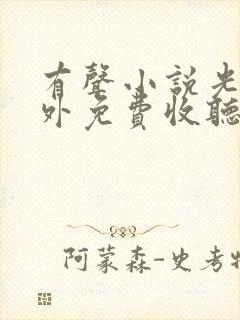 有聲小說光
外免費收聽
阿蒙森-史考特